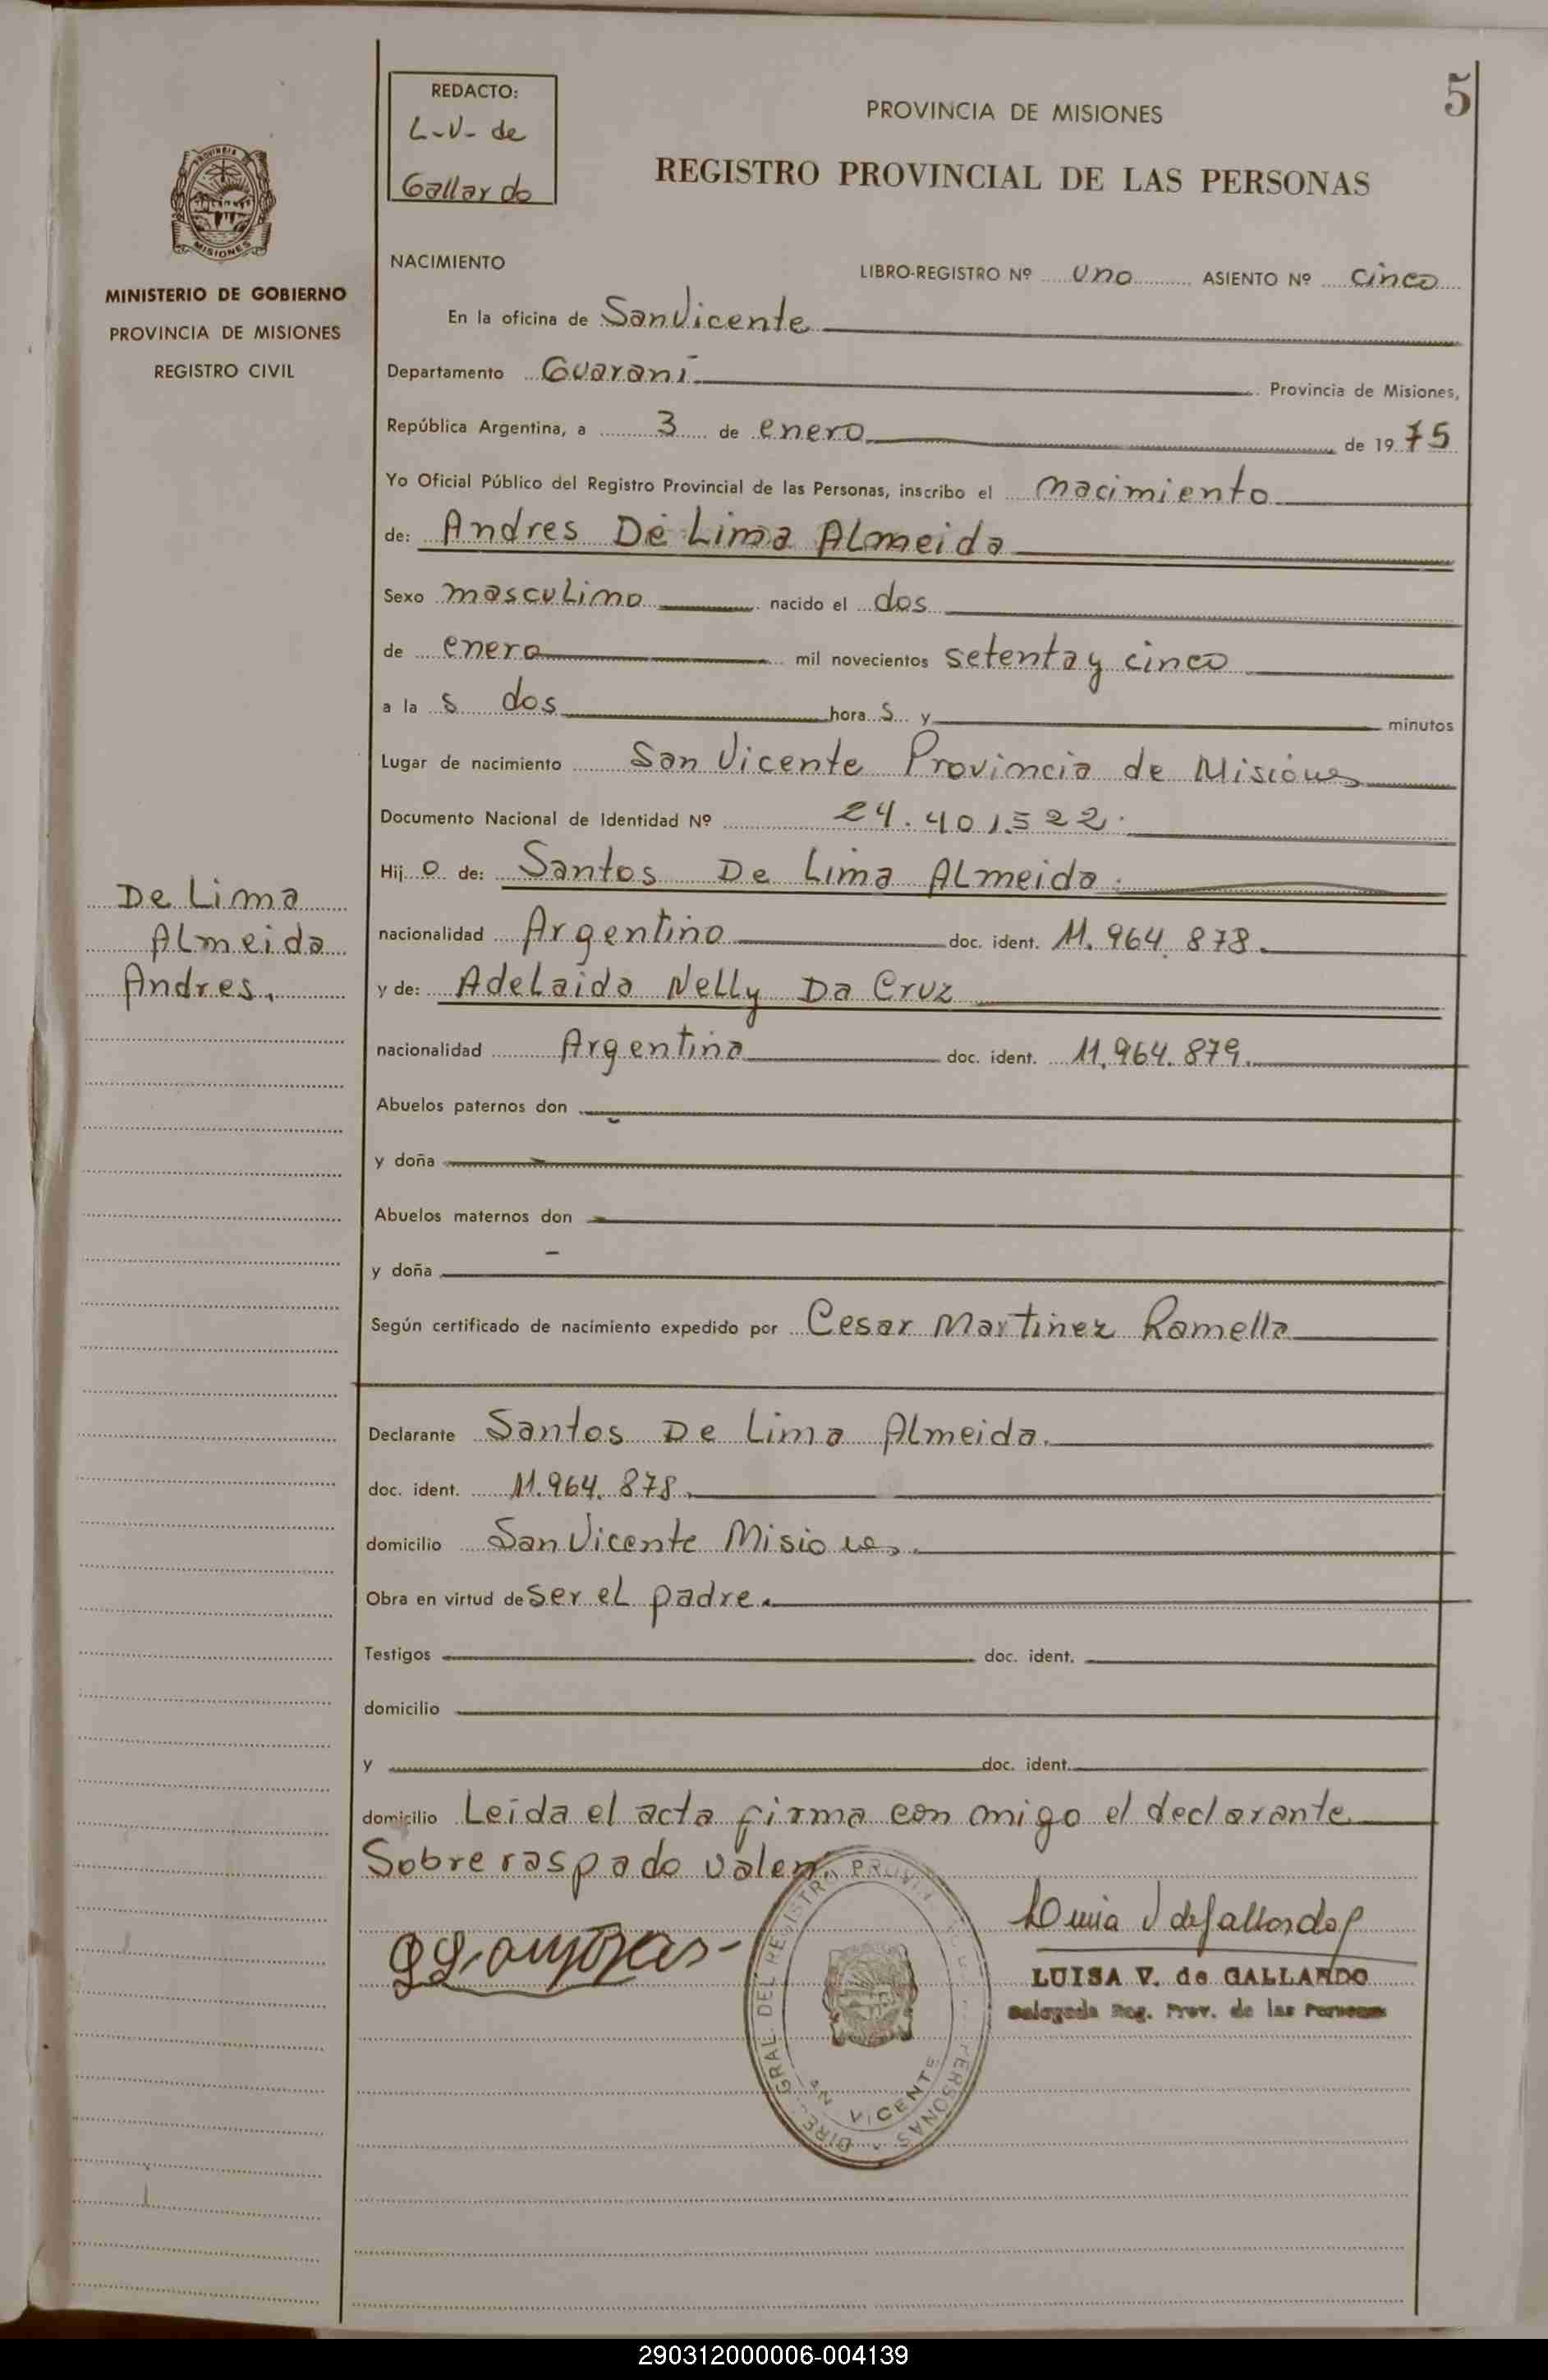 5
REDACTO:
L-V- de
Gallardo
PROVINCIA DE MISIONES
REGISTRO PROVINCIAL DE LAS PERSONAS
PROVINCIA
MISIONES
MINISTERIO DE GOBIERNO
PROVINCIA DE MISIONES
REGISTRO CIVIL
NACIMIENTO
LIBRO-REGISTRO Nº uno ASIENTO Nº cinco
En la oficina de San Vicente
Departamento Guaraní Provincia de Misiones,
República Argentina, a 3 de enero de 1975
Yo Oficial Público del Registro Provincial de las Personas, inscribo el nacimiento
de: Andres De Lima Almeida
Sexo masculino nacido el dos
de enero mil novecientos setenta y cinco
a la s dos hora s y minutos
Lugar de nacimiento San Vicente Provincia de Misiones
Documento Nacional de Identidad Nº 24.401522.
De Lima
Almeida
Andres.
Hij o de: Santos De Lima Almeida.
nacionalidad Argentino doc. ident. 11.964.878.
y de: Adelaida Nelly Da Cruz
nacionalidad Argentina doc. ident. 11.964.879.
Abuelos paternos don
y doña
Abuelos maternos don
y doña
Según certificado de nacimiento expedido por Cesar Martinez Ramella
Declarante Santos De Lima Almeida.
doc. ident. 11.964.878.
domicilio San Vicente Misiones.
Obra en virtud de ser el padre.
Testigos doc. ident.
domicilio
y doc. ident.
domicilio Leida el acta firma con migo el declarante
Sobre raspado valen.
DIRE. GRAL. DEL REGISTRO PROVI PERSONAS
AN VICENTE
LUISA V. de GALLARDO
Delegada Reg. Prov. de las Personas
290312000006-004139